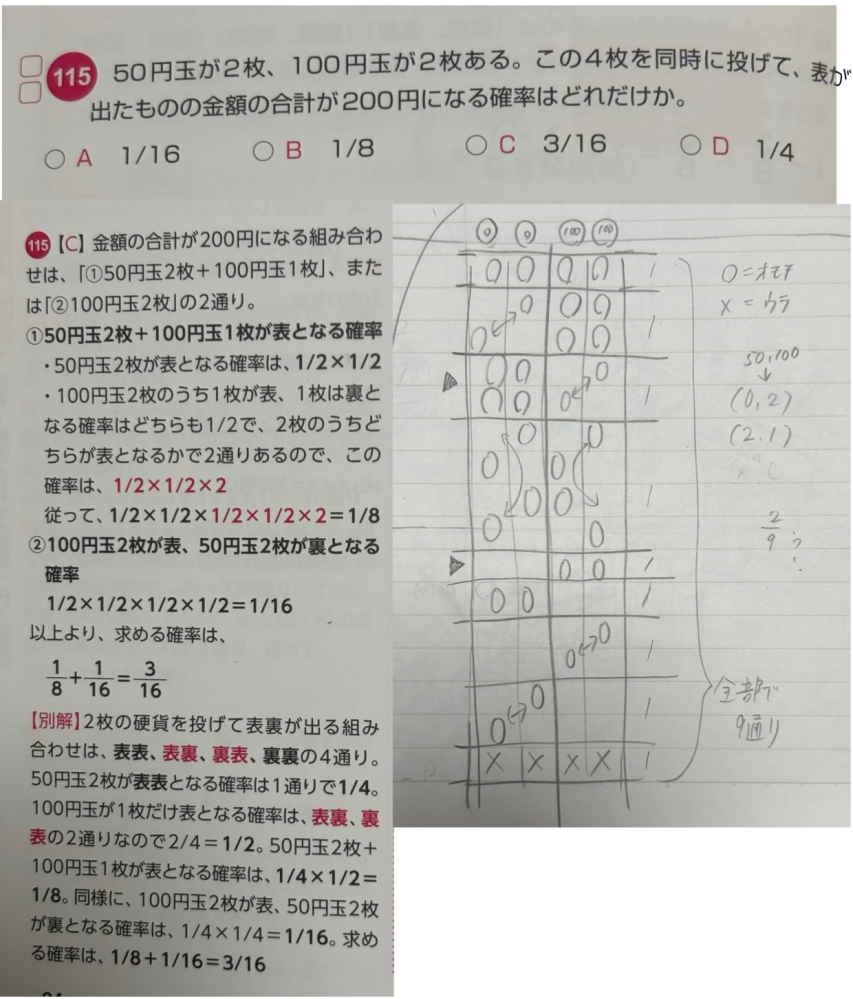 115 50円玉が2枚、100円玉が2枚ある。この4枚を同時に投げて、表が
出たものの金額の合計が200円になる確率はどれだけか。
○ A 1/16 ○ B 1/8 ○ C 3/16 ○ D 1/4
115【C】金額の合計が200円になる組み合わ
せは、「①50円玉2枚+100円玉1枚」、また
は「②100円玉2枚」の2通り。
①50円玉2枚+100円玉1枚が表となる確率
・50円玉2枚が表となる確率は、1/2×1/2
・100円玉2枚のうち1枚が表、1枚は裏と
なる確率はどちらも1/2で、2枚のうちど
ちらが表となるかで2通りあるので、この
確率は、1/2×1/2×2
従って、1/2×1/2×1/2×1/2×2=1/8
②100円玉2枚が表、50円玉2枚が裏となる
確率
1/2×1/2×1/2×1/2=1/16
以上より、求める確率は、
1/8+1/16=3/16
【別解】2枚の硬貨を投げて表裏が出る組み
合わせは、表表、表裏、裏表、裏裏の4通り。
50円玉2枚が表表となる確率は1通りで1/4。
100円玉が1枚だけ表となる確率は、表裏、裏
表の2通りなので2/4=1/2。50円玉2枚+
100円玉1枚が表となる確率は、1/4×1/2=
1/8。同様に、100円玉2枚が表、50円玉2枚
が裏となる確率は、1/4×1/4=1/16。求め
る確率は、1/8+1/16=3/16
100 100
0 0 0 0 1
0 0 0
0 0 0 1
0 0 0
0 0 0 1
0 0
0 0
0 0 1
0 0
0 0 1
0 0 1
0
0 1
0
0 1
× × × × 1
0=オモテ
×=ウラ
50,100
↓
(0,2)
(2.1)
2/9 ?
全部で
9通り